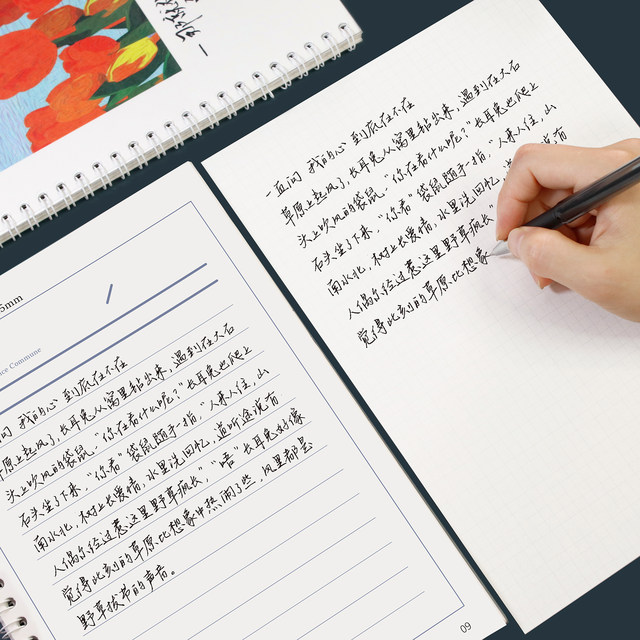 5mm
ce Commune
问 我的心 到底在不在
原上起风了,长耳兔从窝里钻出来,遇到在大石
头上吹风的袋鼠。“你在看什么呢?”长耳兔也爬上
石头坐了下来,“你看”袋鼠随手一指,“人来人往,山
南水北,树上长爱情,水里洗回忆,道听途说有
人偶尔经过惹这里野草疯长”,“唔”长耳兔好像
觉得此刻的草原比想象中热闹了些,风里都是
野草拔节的声音。
09
一直问 我的心 到底在不在
草原上起风了,长耳兔从窝里钻出来,遇到在大石
头上吹风的袋鼠。“你在看什么呢?”长耳兔也爬上
石头坐了下来,“你看”袋鼠随手一指,“人来人往,山
南水北,树上长爱情,水里洗回忆,途说有
人偶尔经过惹这里野草疯长
觉得此刻的草原比想象